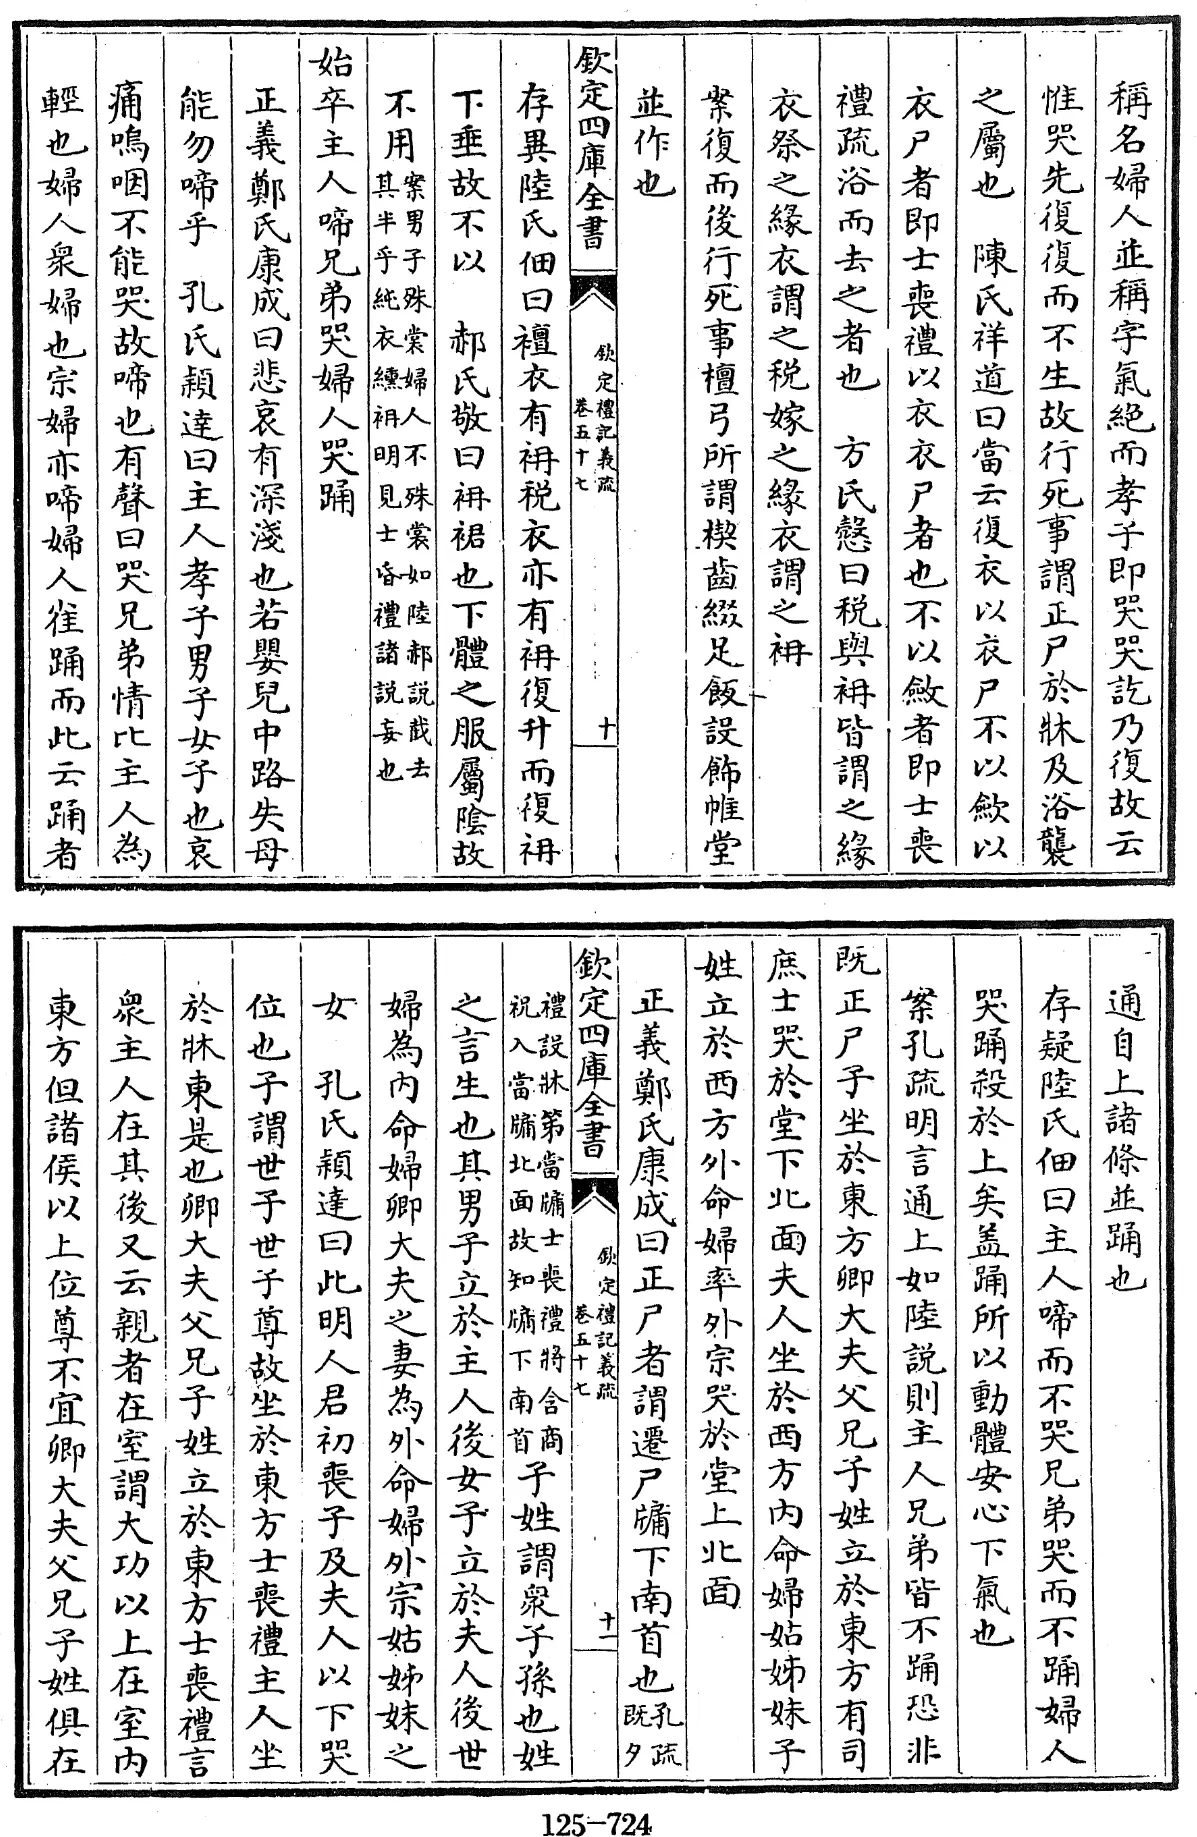 稱名婦人並稱字氣絶而孝子即哭哭訖乃復故云
惟哭先復復而不生故行死事謂正尸於牀及浴襲
之屬也　陳氏祥道曰當云復衣以衣尸不以歛以
衣尸者即士喪禮以衣衣尸者也不以斂者即士喪
禮疏浴而去之者也　方氏慤曰税與袡皆謂之緣
衣祭之緣衣謂之税嫁之緣衣謂之袡
案復而後行死事檀弓所謂楔齒綴足飯設飾帷堂
並作也
欽定四庫全書
欽定禮記義疏
卷五十七
十
存異陸氏佃曰襢衣有袡税衣亦有袡復升而復袡
下垂故不以　郝氏敬曰袡裙也下體之服屬陰故
不用
案男子殊裳婦人不殊裳如陸郝説戱去
其半乎純衣纁袡明見士昏禮諸説妄也
始卒主人啼兄弟哭婦人哭踊
正義鄭氏康成曰悲哀有深淺也若嬰兒中路失母
能勿啼乎　孔氏穎達曰主人孝子男子女子也哀
痛嗚咽不能哭故啼也有聲曰哭兄弟情比主人為
輕也婦人衆婦也宗婦亦啼婦人雀踊而此云踊者
通自上諸條並踊也
存疑陸氏佃曰主人啼而不哭兄弟哭而不踊婦人
哭踊殺於上矣盖踊所以動體安心下氣也
案孔疏明言通上如陸説則主人兄弟皆不踊恐非
既正尸子坐於東方卿大夫父兄子姓立於東方有司
庶士哭於堂下北面夫人坐於西方内命婦姑姊妹子
姓立於西方外命婦率外宗哭於堂上北面
正義鄭氏康成曰正尸者謂遷尸牖下南首也
孔疏
既夕
欽定四庫全書
欽定禮記義疏
卷五十七
十一
禮設牀第當牖士喪禮將含商
祝入當牖北面故知牖下南首
子姓謂衆子孫也姓
之言生也其男子立於主人後女子立於夫人後世
婦為内命婦卿大夫之妻為外命婦外宗姑姊妹之
女　孔氏穎達曰此明人君初喪子及夫人以下哭
位也子謂世子世子尊故坐於東方士喪禮主人坐
於牀東是也卿大夫父兄子姓立於東方士喪禮言
衆主人在其後又云親者在室謂大功以上在室内
東方但諸侯以上位尊不宜卿大夫父兄子姓俱在
125-724